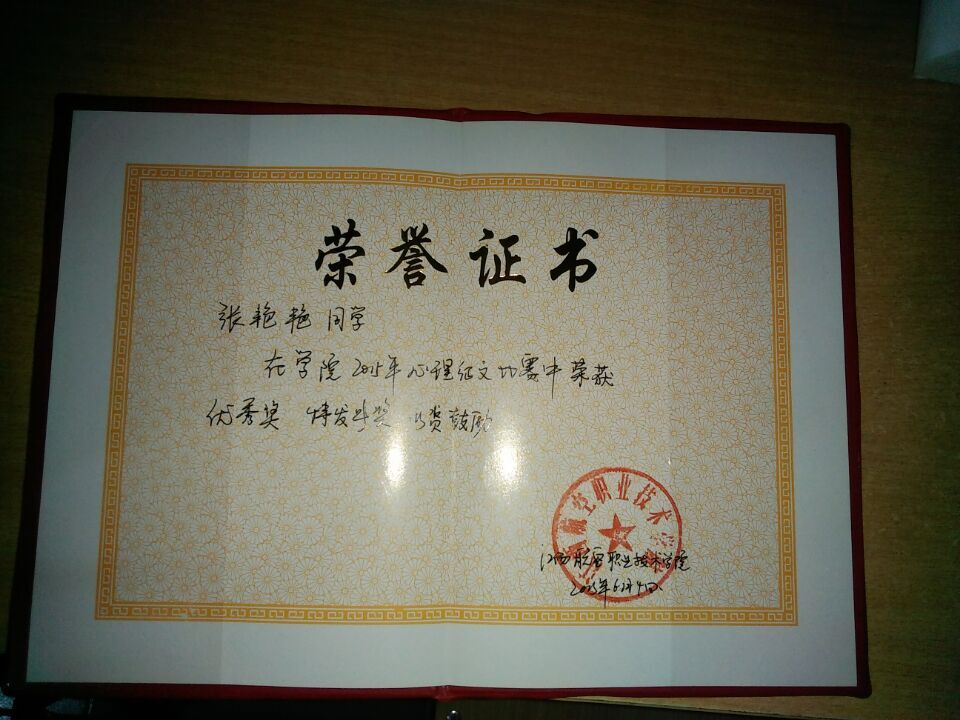 荣誉证书
张艳艳同学
在学院2015年心理征文比赛中荣获
优秀奖 特发此奖 以资鼓励
航空职业技术学院
江西航空职业技术学院
2015年6月4日